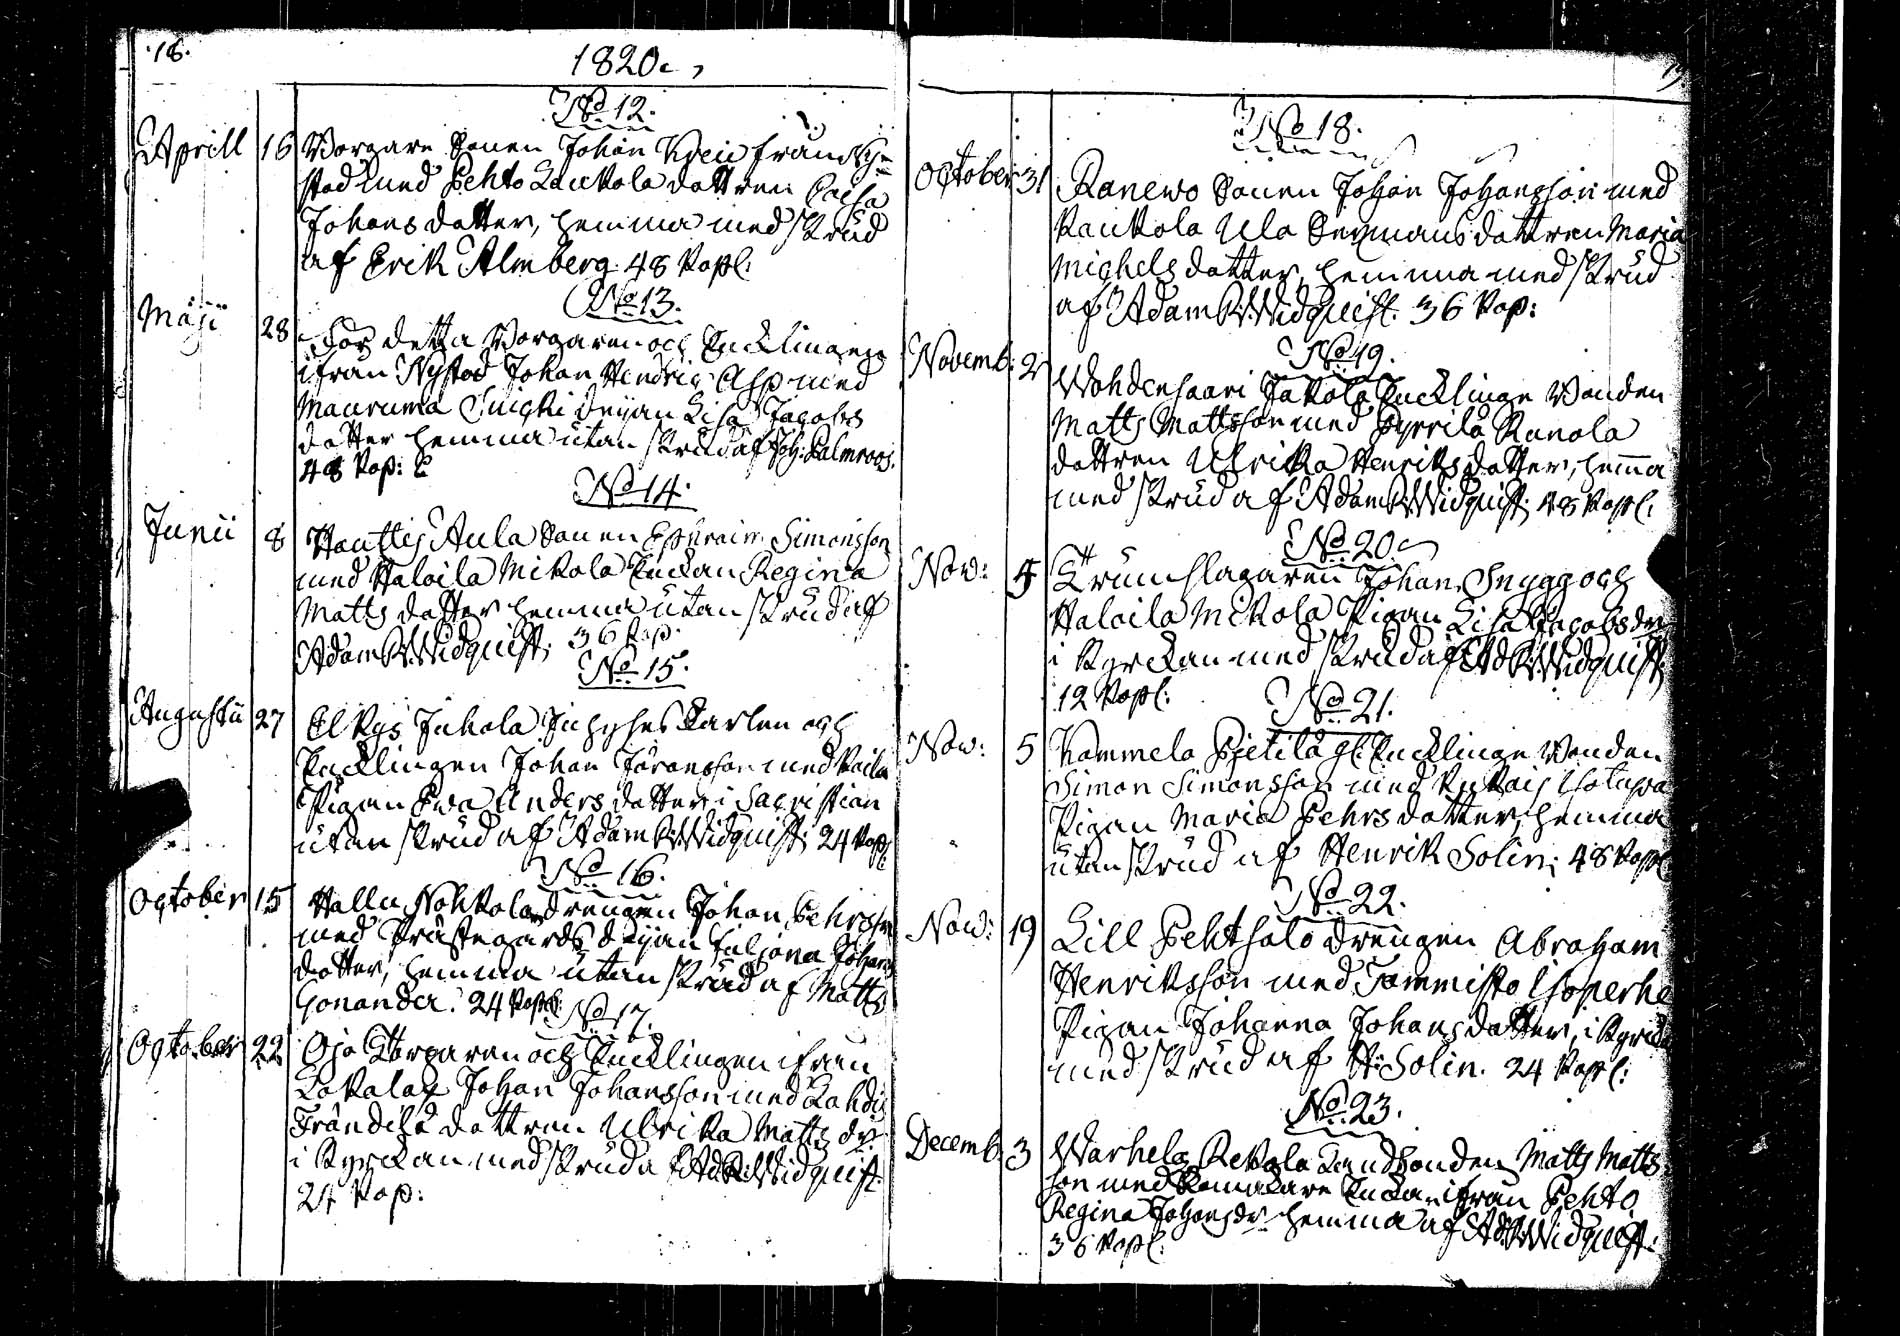 18.
1820.
No 12.
Aprill 16 Borgare Sonen Johan Kreii från Ny=
stad med Pehto Laukola dottren Caisa
Johans dotter, hemma med skrud
af Erik Almberg. 48 kop:
No 13.
Maji 28 För detta Borgaren och Encklingen
ifrån Nystad Johan Hendric Alp med
Mauruma Suicki drijan Lisa Jacobs
dotter hemma utan skrud af Joh: Palmroos.
48 kop:
No 14.
Junii 8 Hauttis Aula Sonen Ephraim Simonsson
med Haloila Mikola Enckan Regina
Matts dotter hemma utan skrud af
Adam R. Widquist. 36 kop.
No 15.
Augustii 27 Elkys Juhola Inhyses Karlen och
Encklingen Johan Göransson med
Pigan Ewa Anders dotter i Sacristian
utan skrud af Adam R. Widquist. 24 kop:
No 16.
October 15 Hallu Nohkola drengen Johan Pehrsson
med Prästegårds drijan Juliana Johans
dotter, hemma utan skrud af Matts
Gonander. 24 kop:
No 17.
October 22 Ojo Torparen och Encklingen ifrån
Lokalax Johan Johansson med Kahdis
Frändilä dottren Ulrika Matts dr
i Kyrckan med skrud af Ad. R. Widquist.
24 kop:
19
No 18.
October 31 Ranewo Sonen Johan Johansson med
Kaukola Ula Sexmans dottren Maria
Michels dotter, hemma med skrud
af Adam R. Widquist. 36 kop:
No 19.
Novemb: 2 Wohdensaari Jakola Encklinge Bonden
Matts Mattsson med Pyrrilä Ranola
dottren Ulrika Henriks dotter, hemma
med skrud af Adam R. Widquist. 48 kop:
No 20.
Nov: 5 Trumslagaren Johan Snygg och
Haloila Mikola Pigan Lisa Jacobs dr
i Kyrckan med skrud af Ad. R. Widquist.
12 kop:
No 21.
Nov: 5 Kammela Pietilä gl. Encklinge Bonden
Simon Simonsson med
Pigan Maria Pehrs dotter, hemma
utan skrud af Henrik Solin. 48 kop:
No 22.
Nov: 19 Lill Pehtsalo drengen Abraham
Henriksson med Tammisto Isoperhe
Pigan Johanna Johans dotter, i Kyrckan
med skrud af H: Solin. 24 kop:
No 23.
Decemb. 3 Warhela Rekola Landbonden Matts Matts=
son med Enckan ifrån Pehto
Regina Johans dr hemma af Ad. R. Widquist.
36 kop: